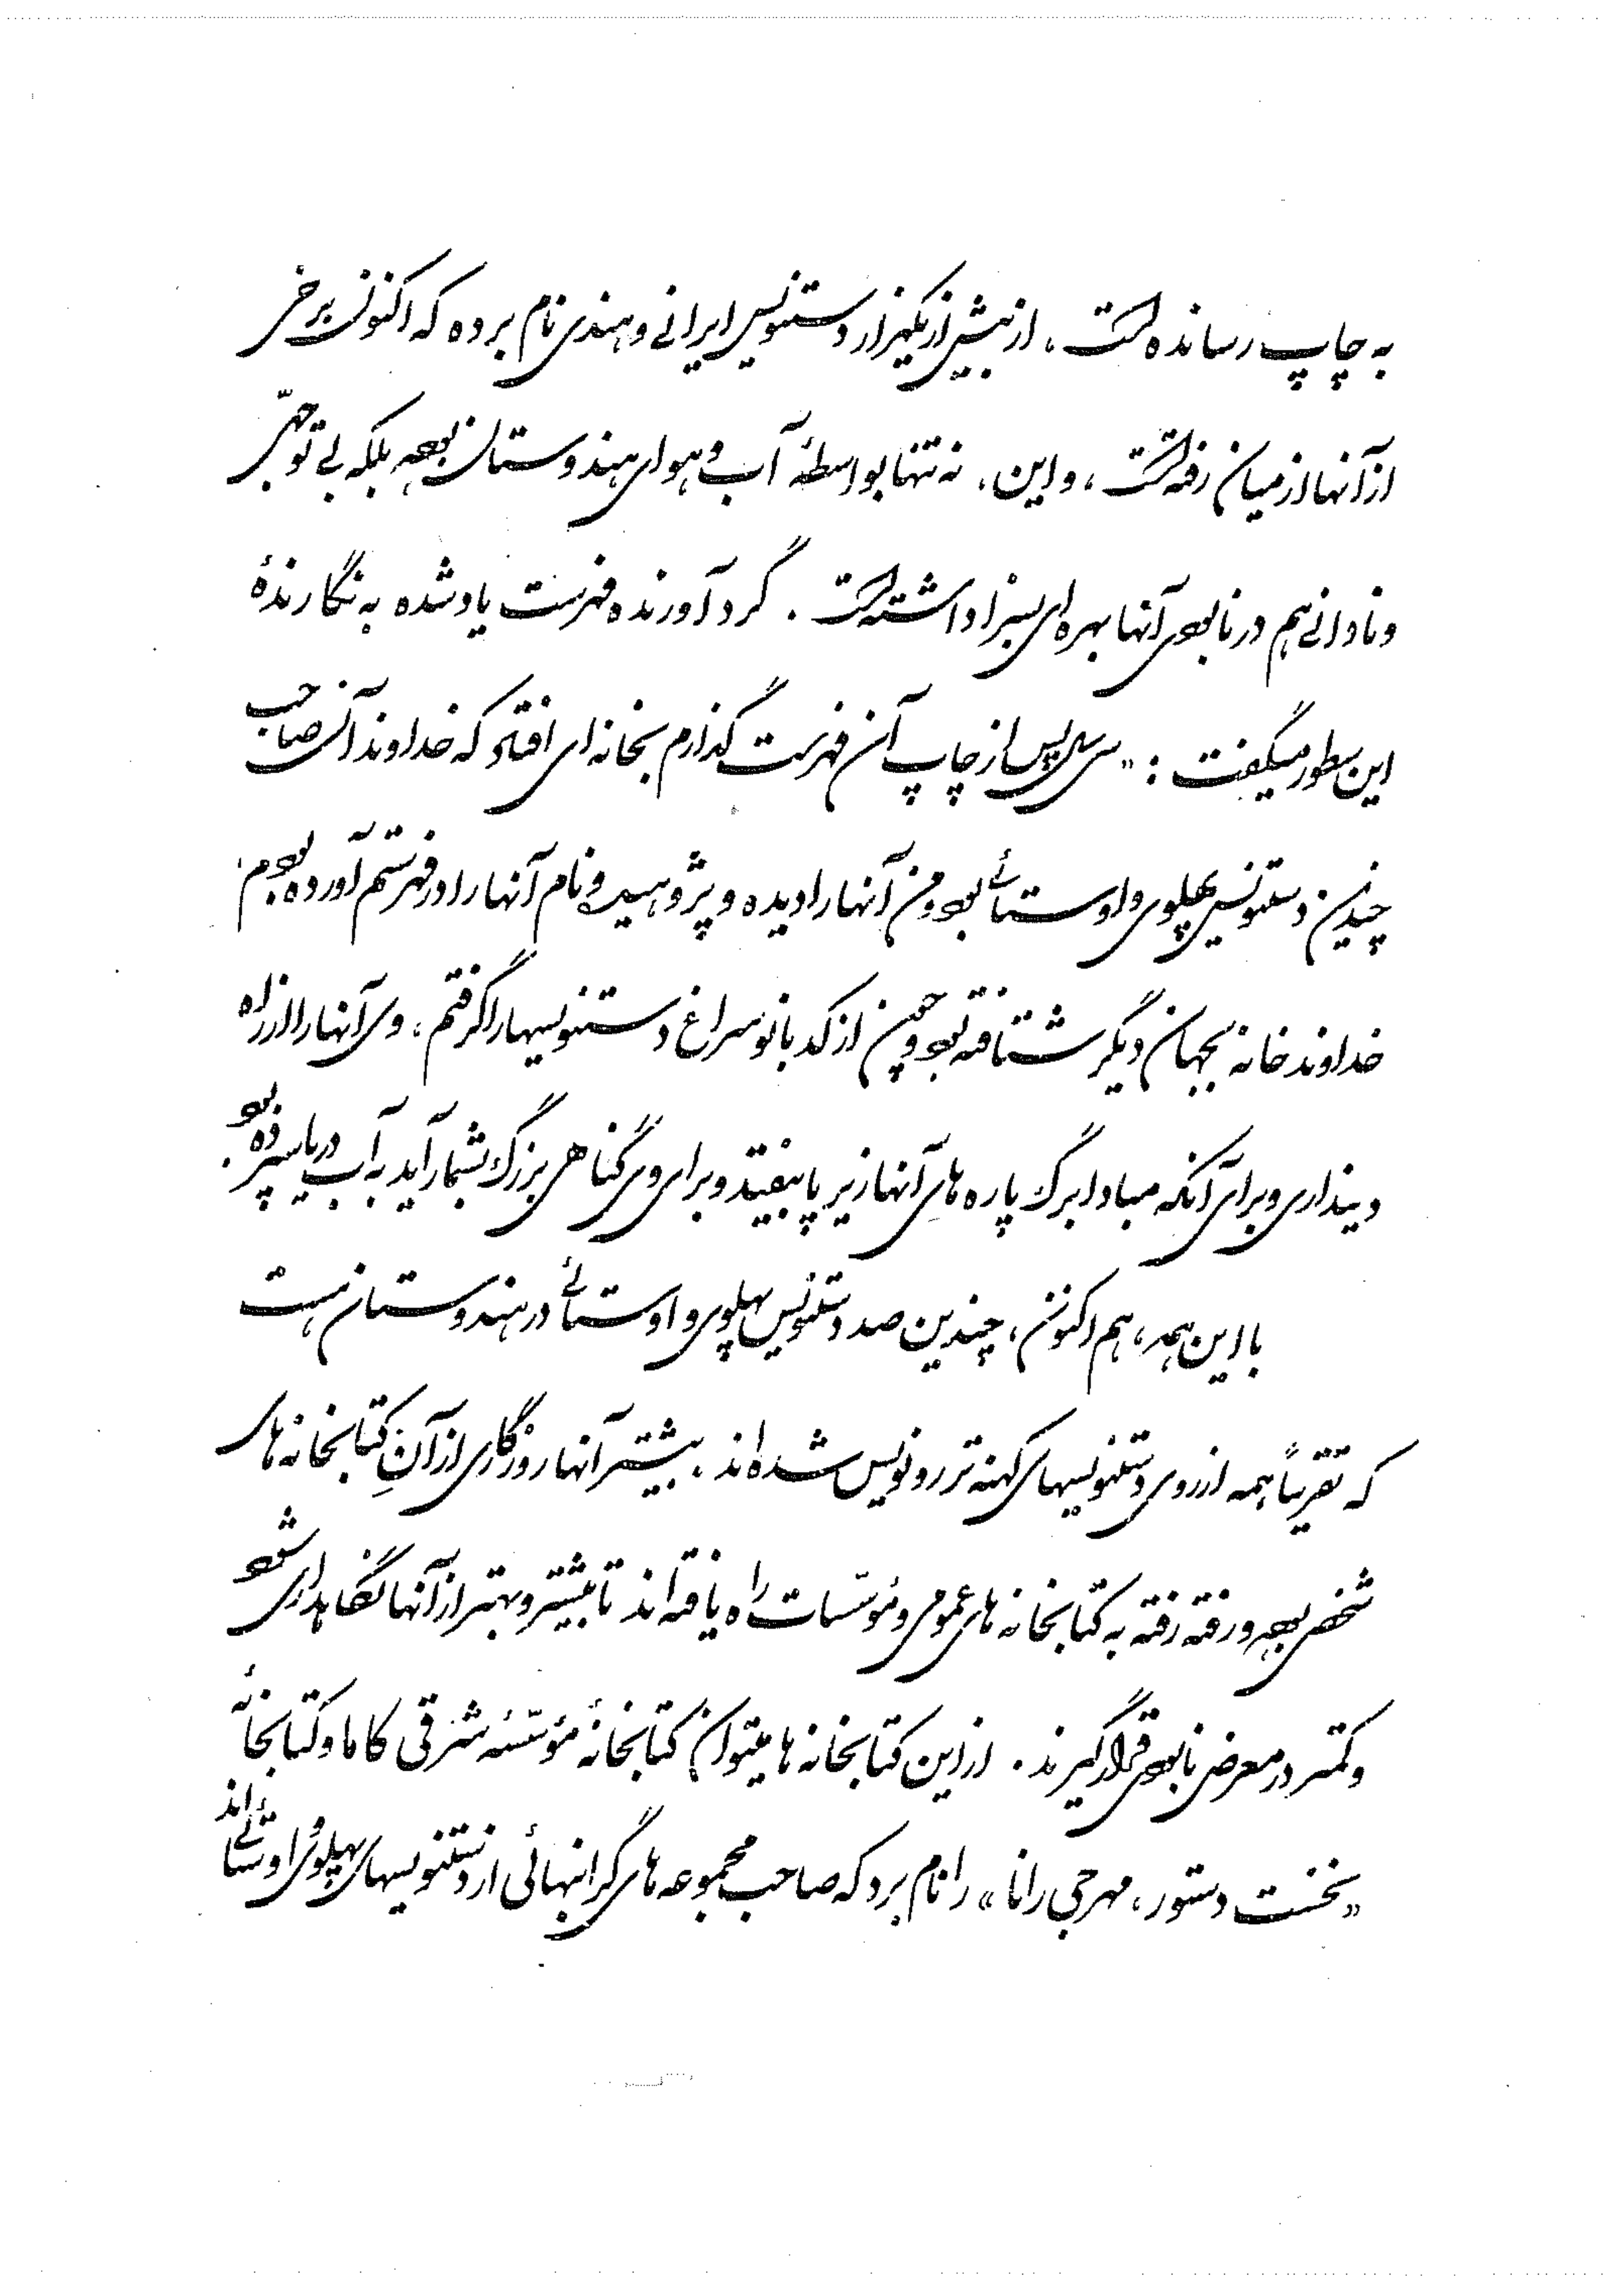 به چاپ رسانده است، از بیش از یکهزار دستنویس ایرانی و هندی نام برده که اکنون برخی
از آنها از میان رفته است، و این، نه تنها بواسطهٔ آب و هوای هندوستان بوده بلکه بی توجهی
و نادانی هم در نابودی آنها بهره‌ای بسزا داشته است. گردآورنده فهرست یادشده به نگارندهٔ
این سطور میگفت: «سی سال پس از چاپ آن فهرست گذارم بخانه‌ای افتاد که خداوند آن صاحب
چندین دستنویس پهلوی و اوستائی بود و من آنها را دیده و پژوهیده و نام آنها را در فهرستم آورده بودم.
خداوند خانه بجهان دیگر شتافته بود و چون از کدبانو سراغ دستنویسها را گرفتم، وی آنها را از راه
دینداری و برای آنکه مبادا برگ پاره‌های آنها زیر پا بیفتد و برای وی گناهی بزرگ بشمار آید به آب دریا سپرده بود.
با این همه، هم اکنون، چندین صد دستنویس پهلوی و اوستائی در هندوستان هست
که تقریباً همه از روی دستنویسهای کهنه‌تر رونویس شده‌اند، بیشتر آنها روزگاری از آنِ کتابخانه‌های
شخصی بوده و رفته رفته به کتابخانه‌های عمومی و مؤسّسات راه یافته‌اند تا بیشتر و بهتر از آنها نگاهداری شود
و کمتر در معرض نابودی قرار گیرند. از این کتابخانه‌ها میتوان کتابخانهٔ مؤسّسهٔ شرقی کاما و کتابخانهٔ
«نخست دستور، مهرجی رانا» را نام برد که صاحب مجموعه‌های گرانبهائی از دستنویسهای پهلوی و اوستائی‌اند